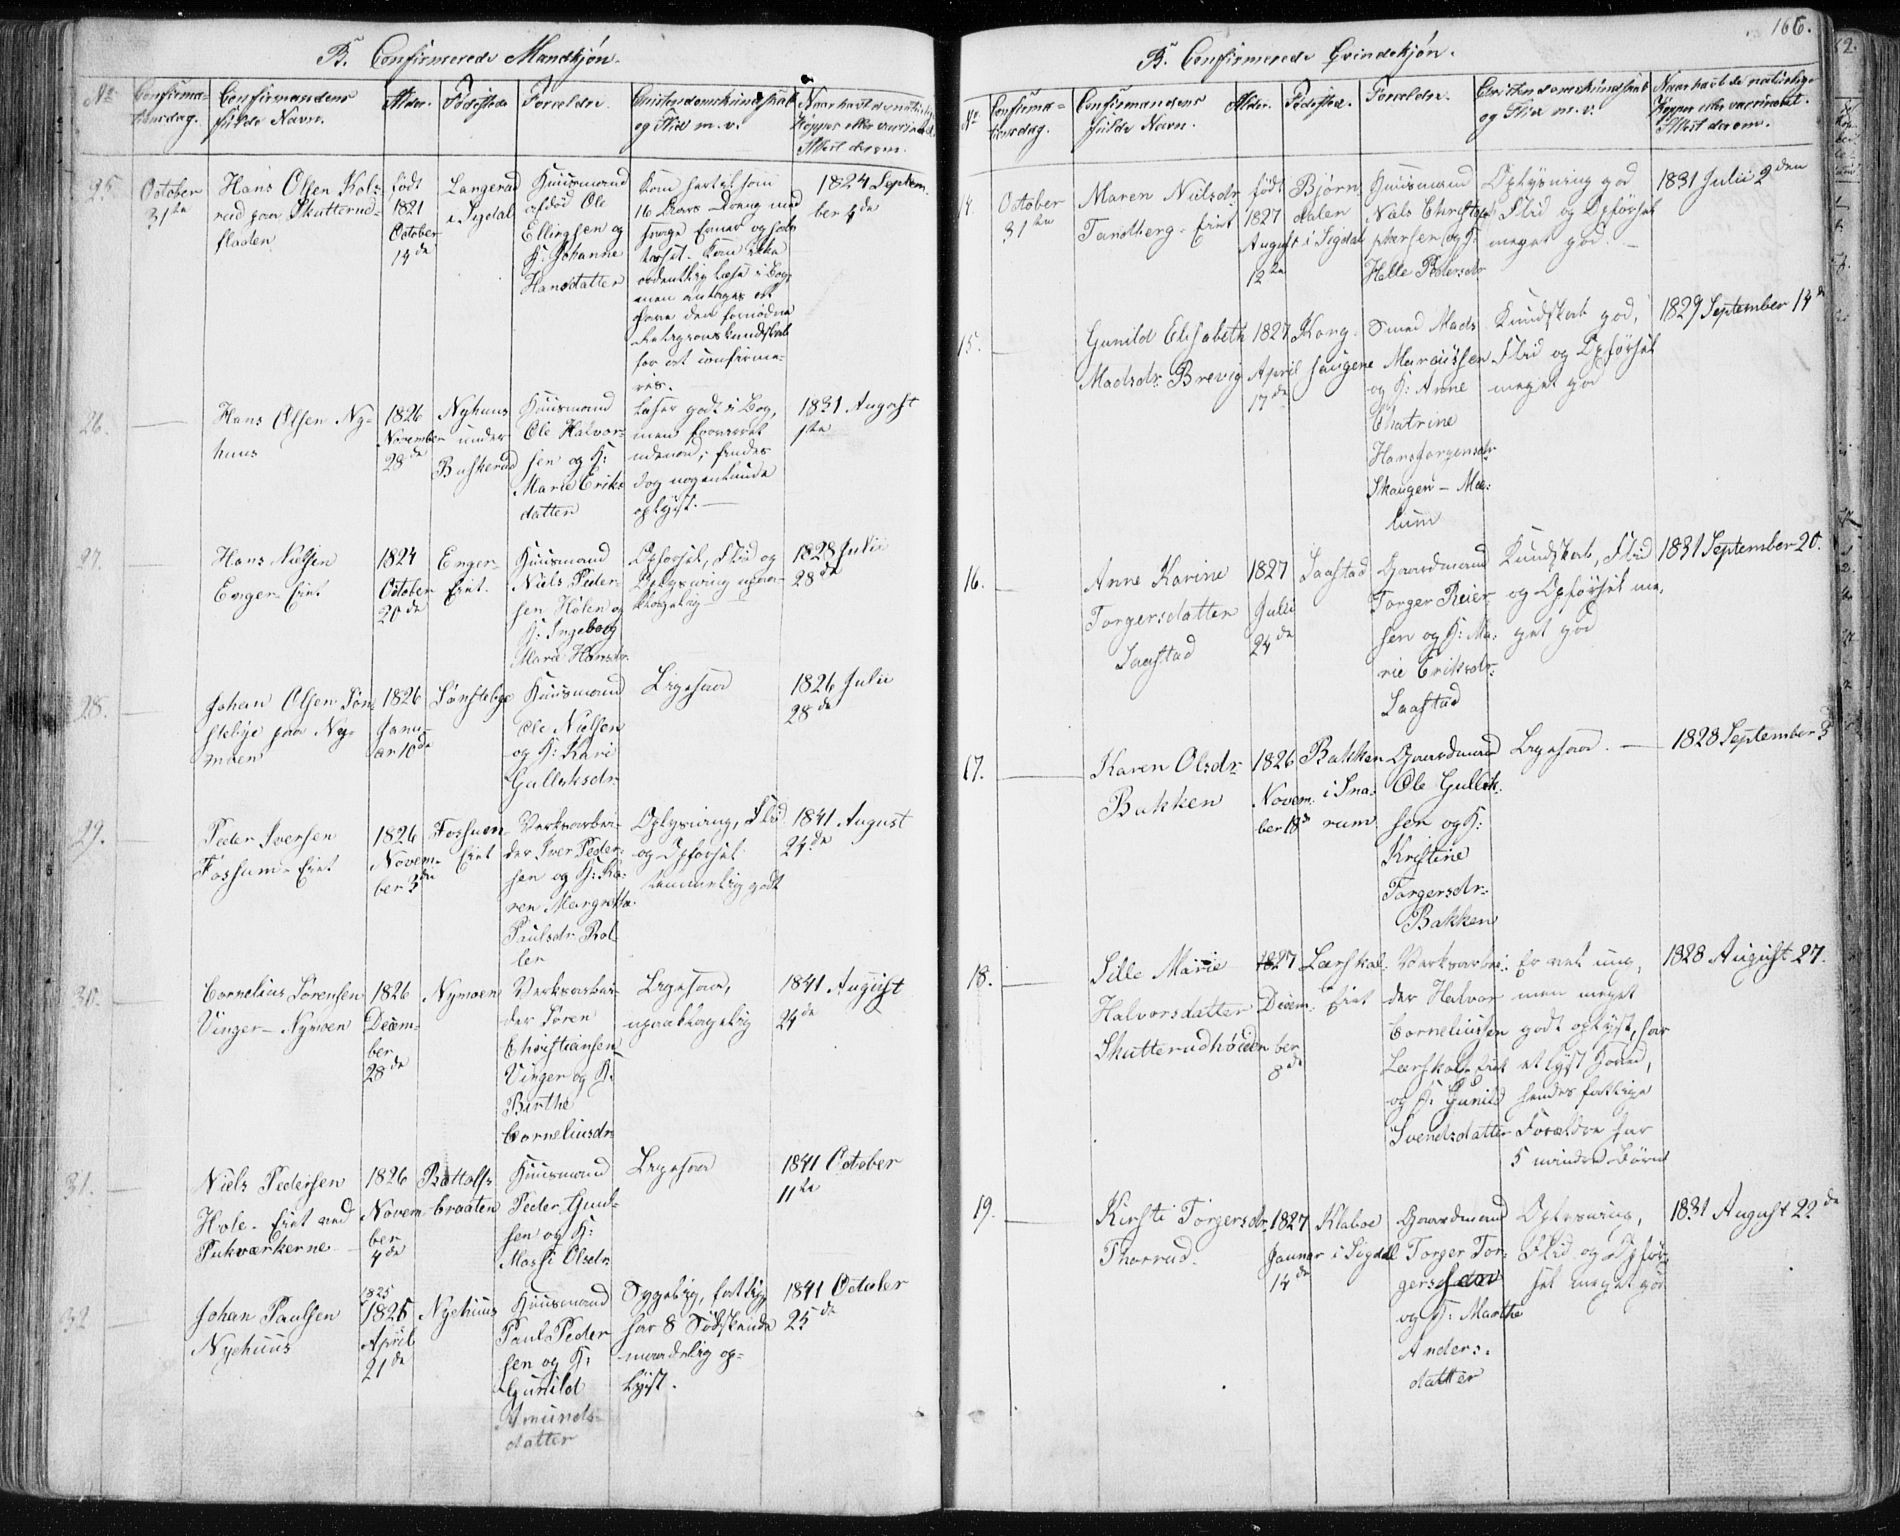 B. Confirmerede Mandkjøn.
No
Confirma-
tionsdag.
Confirmandens
fulde Navn.
Alder.
Fødested
Forældre.
Christendomskundskab
og Flid m. v.
Naar havt de naturlige
Kopper eller vaccineret.
Attest derom.
25.
October
31te
Hans Olsen Kols-
rud paa Skutterud-
fladen
født
1821
October
14de
Langerud
i Sigdal
Huusmand
afdød Ole
Ellingsen og
K: Johanne
Hansdatter
Kom hertil som
16 Aars Dreng med
men antages at
have den fornødne
Religionskundskab
for at confirme-
res.
1824 Septem-
ber 4de
26.
Hans Olsen Ny-
huus
1826
November
28de
Nyhuus
under
Buskerud
Huusmand
Ole Halvor-
sen og K:
Marie Eriks-
datter
læser godt i Bog,
men forøvrigt
dog nogenlunde
oplyst. —
1831 August
1te
27.
Hans Nielsen
Enger-Eiet
1824
October
20de
Enger-
Eiet.
Huusmand
Niels Peder-
sen Holen og
K: Ingeborg
Marie Hansdr
Opførsel, Flid og
Oplysning upaa-
klagelig
1828 Julii
28de
28.
Johan Olsen Søn-
stebye paa Ny-
moen
1826
Janu-
ar 10de
Sønstebye
Huusmand
Ole Nielsen
og K: Kari
Gulleksdr
Ligesaa
1826 Julii
28de
29.
Peder Iversen
Fossum-Eiet
1826
Novem-
ber 3die
Fossum-
Eiet
Verksarbei-
der Iver Peder-
sen og K: Ka-
ren Margretha
Paulsdr Rol-
len
Oplysning, Flid
og Opførsel
temmelig godt
1841 August
24de
30.
Cornelius Sørensen
Vinger-Nymoen
1826
Decem-
ber
28de
Nymoen
Verksarbei-
der Søren
Christiansen
Vinger og K:
Birthe
Corneliusdr
Ligesaa,
upaaklagelig
1841 August
24de
31.
Niels Pedersen
Hole-Eiet ved
Pukværkerne
1826
Novem-
ber
4de
Bottolfs-
braaten
Huusmand
Peder Gund-
sen og K:
Massi Olsdr
Ligesaa
1841 October
11te
32
Johan Paulsen
Nyehuus
1825
1825
April
21de
Nyehuus
Huusmand
Paul Peder
sen og K:
Gunild
Amunds-
datter
Sygelig, fattig
har 8 Sødskende
maadelig op-
lyst.
1841 October
25de
166.
B. Confirmerede Qvindekjøn.
No
Confirma-
tionsdag.
Confirmandens
fulde Navn.
Alder.
Fødested.
Forældre.
Christendomskundskab
og Flid m. v.
Naar havt de naturlige
Kopper eller vaccineret.
Attest derom.
14.
October
31te
Maren Nielsdr
Tandberg-Eiet
født
1827
August
12te
Bjørn
dalen
i Sigdal
Huusmand
Niels Christof-
phersen og K:
Helle Pedersdr
Oplysning god
Flid og Opførsel
meget god. —
1831 Julii 2den
15.
Gunild Elisabeth
Madsdr Brevig
1827
April
17de
Kong-
haugene
Smed Mads
Marcussen
og K: Anne
Chatrine
Hans Jørgensdr
Skaugen - Mæ-
lum
Kundskab god,
Flid og Opførsel
meget god
1829 September 14de
16.
Anne Karine
Torgersdatter
Laastad
1827
Julii
24de
Laastad
Gaardmand
Torger Reier-
sen og K: Ma-
rie Eriksdr
Laastad
Kundskab, Flid
og Opførsel me-
get god
1831 September 20.
17.
Karen Olsdr
Bakken
1826
Novem-
ber 18de
Bakken
i Sna-
rum
Gaardmand
Ole Gullik-
sen og K:
Kristine
Torgersdr
Bakken
Ligesaa. —
1828 September 3
18.
Sille Marie
Halvorsdatter
Skutterudhøiden
1827
Decem-
ber
8de
Lerskal-
Eiet
Verksarbei-
der Halvor
Corneliussen
Lerskal-Eiet
og K: Gunild
Svendsdatter
Er vel ung,
men meget
godt oplyst, har
et lyst Hoved,
hendes fattige
Forældre har
5 mindre Børn
1828 August 27.
19.
Kirsti Torgersdr
Thorrud.
1827
Januar
14de
Klaboe
i Sigdal
Gaardmand
Torger Tor-
gersen
og K: Marthe
Anders-
datter
Oplysning,
Flid og Opfør-
sel meget god
1831 August 22de